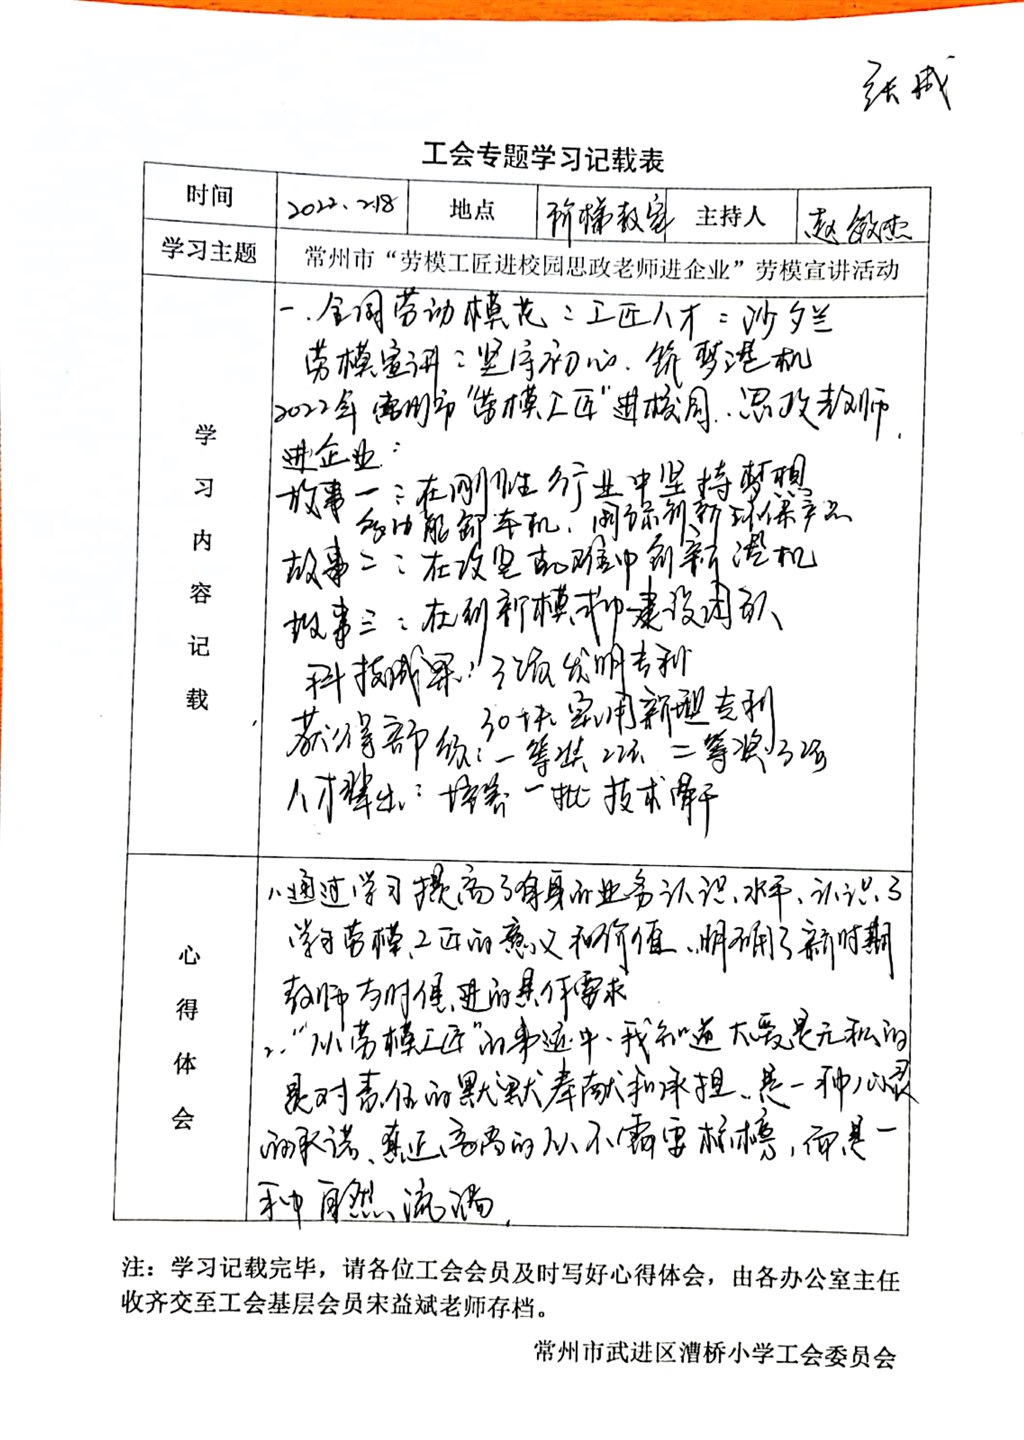 张成
工会专题学习记载表
时间 2022.2.18 地点 阶梯教室 主持人 赵敏杰
学习主题 常州市“劳模工匠进校园思政老师进企业”劳模宣讲活动
学习内容记载
一.全国劳动模范：工匠人才：沙夕兰
劳模宣讲：坚守初心.筑梦港机
2022年常州市“劳模工匠”进校园.思政教师
进企业：
故事一：在刚性行业中坚持梦想
多功能卸车机、创新环保产品
故事二：在攻坚克难中创新港机
故事三：在创新模式中建设团队
科技成果：3项发明专利
30块实用新型专利
获得部级：一等奖2项 二等奖3项
人才辈出：培养一批技术骨干
心得体会
1.通过学习提高了自身的业务认识水平、认识了
学习劳模、工匠的意义和价值、明确了新时期
教师与时俱进的具体需求
2.“从劳模工匠”的事迹中.我知道大爱是无私的
是对责任的默默奉献和承担、是一种心灵
的承诺、真正高尚的人不需要标榜，而是一
种自然流淌.
注：学习记载完毕，请各位工会会员及时写好心得体会，由各办公室主任
收齐交至工会基层会员宋益斌老师存档。
常州市武进区漕桥小学工会委员会